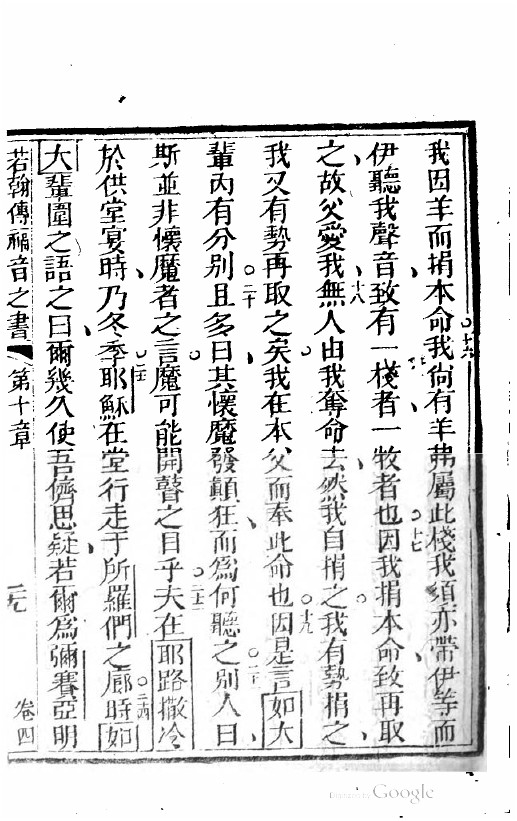 我因羊而捐本命我尙有羊弗屬此棧我須亦帶伊等而
伊聽我聲音致有一棧者一牧者也因我捐本命致再取
之故父愛我無人由我奪命去然我自捐之我有勢捐之
我又有勢再取之矣我在本父而奉此命也因是言如大
輩內有分别且多曰其懷魔發顛狂而爲何聽之别人曰
斯並非懷魔者之言魔可能開瞽之目乎夫在耶路撒冷
於供堂宴時乃冬季耶穌在堂行走于所羅們之廊時如
大輩圍之語之曰爾幾久使吾儕思疑若爾爲彌賽亞明
若翰傳福音之書 第十章 二九 卷四
○十六
○十七
○十八
○十九
○二十
○二二
○二四
Google